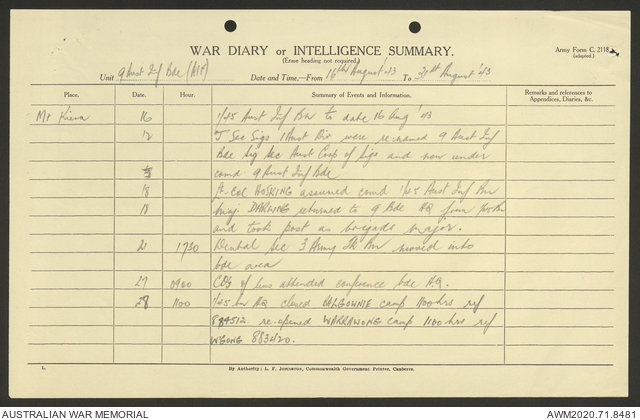 WAR DIARY or INTELLIGENCE SUMMARY.
(Erase heading not required.)
Army Form C. 2118
(adapted.)
Unit 9 Aust Inf Bde (AIF)
Date and Time.—From 16th August '43 To 31st August '43
Place. Date. Hour. Summary of Events and Information. Remarks and references to Appendices, Diaries, &c.
Mt Kiera 16 1/45 Aust Inf Bn to date 16 Aug '43
J Sec Sigs 1 Aust Div were re-named 9 Aust Inf
Bde Sig Sec Aust Corp of Sigs and now under
comd 9 Aust Inf Bde
18 Lt-Col HOSKING assumed comd 1/45 Aust Inf Bn
18 Maj DARLING returned to 9 Bde HQ from
and took post as brigade major.
21 1730 Dental Sec 3 Army Tk Bn moved into
bde area
27 0900 CO's of bns attended conference bde H.Q.
28 1100 1/45 bn HQ closed BALGOWNIE camp 1100 hrs ref
884512 re-opened WARRAWONG camp 1100 hrs ref
WGONG 883420.
By Authority: L. F. Johnston, Commonwealth Government Printer, Canberra.
AUSTRALIAN WAR MEMORIAL
AWM2020.71.8481